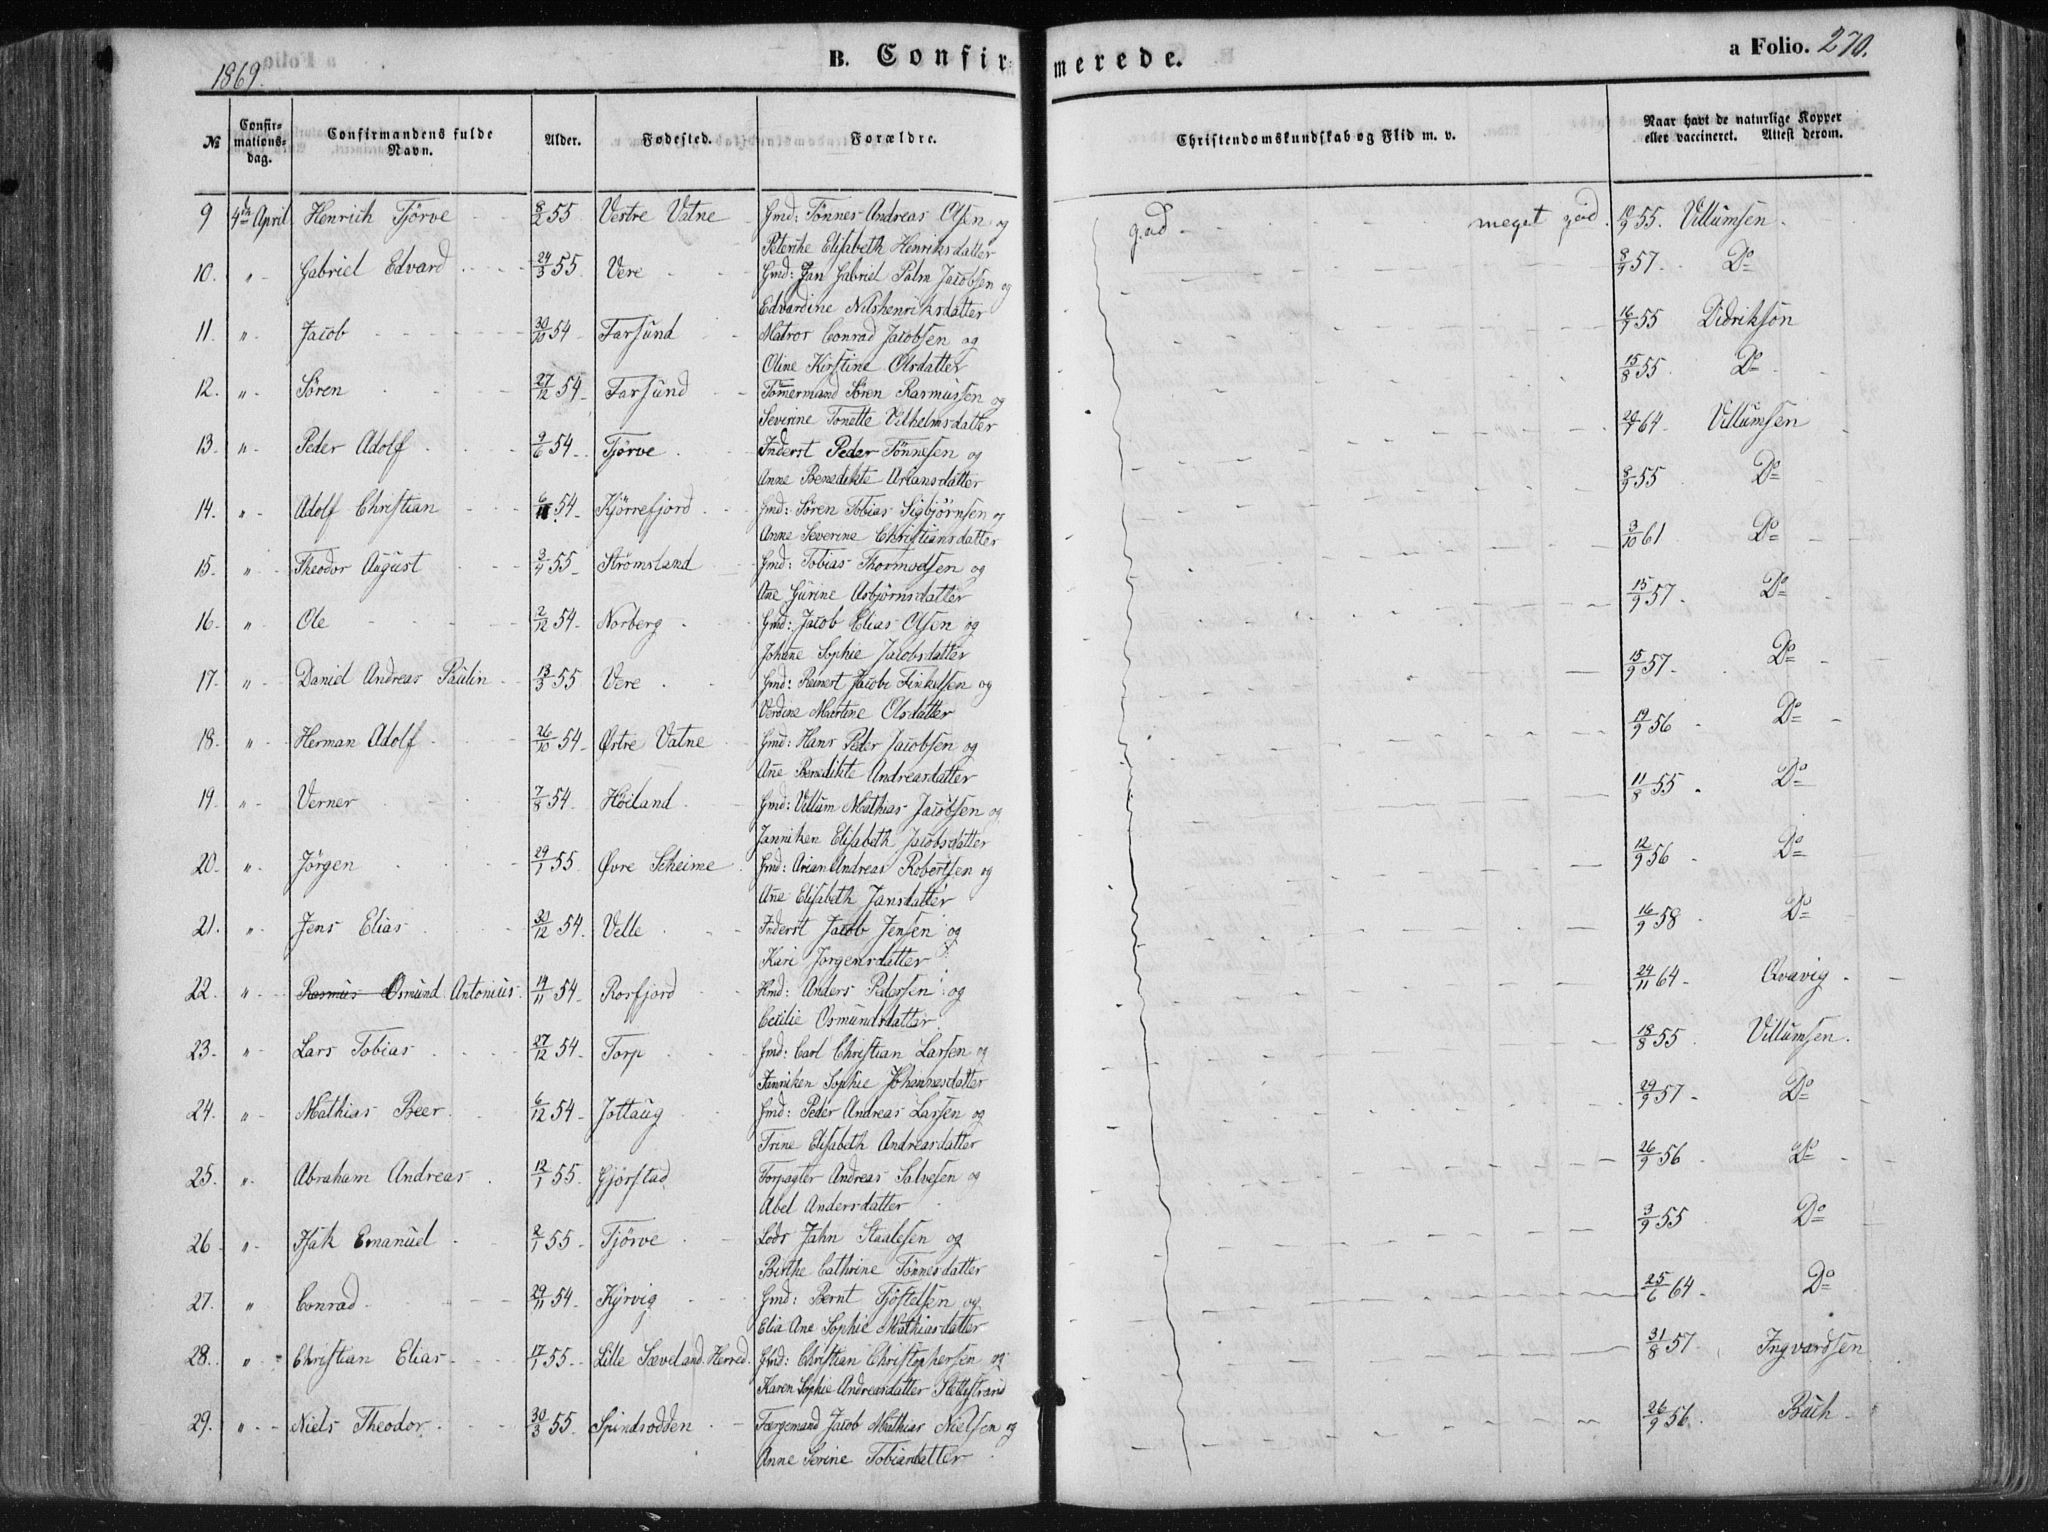 1869.
B. Confirmerede.
a Folio. 270.
№ Confirmationsdag. Confirmandens fulde Navn. Alder. Fødested. Forældre. Christendomskundskab og Flid m. v. Naar havt de naturlige Kopper eller vaccineret. Attest derom.
9 4de April Henrich Tjörve 8/2 55 Vestre Vatne Gmd: Tönnes Andreas Olsen og god - meget god. 10/9 55. Villumsen.
Peterike Elisabeth Henriksdatter
10. " Gabriel Edvard 24/3 55. Vere Gmd: Jan Gabriel Palm Jacobsen og 8/9 57. Do
Edvardine Nilshenriksdatter
11. " Jacob 30/10 54 Farsund Matros Conrad Jacobsen og 16/7 55 Didrikson
Oline Kirstine Olsdatter
12. " Sören 27/12 54. Farsund Tömermand Sören Rasmussen og 15/8 55. Do
Severine Tonette Vilhelmsdatter
13. " Peder Adolf 9/6 54. Tjörve. Inderst Peder Tönnesen og 20/7 64. Villumsen
Anne Benedikte Ariansdatter
14. " Adolf Christian 6/11 54. Kjörrefjord Gmd: Sören Tobias Sigbjörnsen og 8/9 55. Do
Anne Severine Christiansdatter
15. " Theodor August 3/4 55. Strömsland Gmd: Tobias Thormodsen og 3/10 61 Do
Ane Gurine Asbjörnsdatter
16. " Ole 2/12 54. Norberg Gmd: Jacob Elias Olsen og 15/9 57. Do
Johanne Sophie Jacobsdatter
17. " Daniel Andreas Paulin 13/3 55 Vere. Gmd: Reinert Jacobi Tinkelsen og 15/9 57. Do
Verdine Martine Olsdatter
18. " Herman Adolf 26/10 54. Østre Vatne Gmd: Hans Peder Jacobsen og 19/9 56 Do
Ane Benedikte Andreasdatter
19. " Verner 7/8 54. Höiland. Gmd: Villum Mathias Jacobsen og 11/8 55. Do
Janniken Elisabeth Jacobsdatter
20. " Jörgen 29/1 55. Øvre Scheime Gmd: Arian Andreas Robertsen og 12/9 56 Do
Ane Elisabeth Jansdatter
21. " Jens Elias 30/12 54. Velle Inderst Jacob Jensen og 16/9 58 Do
Kari Jorgensdatter
22. " Rasmus Osmund Antonius. 14/11 54. Rosfjord Hmd: Anders Pedersen og 24/11 64. Qvavig
Cecilie Osmundsdatter.
23. " Lars Tobias 27/12 54. Torp Gmd: Carl Christian Larsen og 18/8 55. Villumsen.
Janniken Sophie Johannesdatter
24. " Mathias Beer. 6/12 54. Jottaug Gmd: Peder Andreas Larsen og 29/9 57. Do
Trine Elisabeth Andreasdatter
25. " Abraham Andreas. 12/1 55. Gjörstad Forpagter Andreas Salvesen og 26/9 56. Do
Abel Andersdatter
26 " Isak Emanuel 2/1 55. Tjörve Lods Jahn Staalesen og 3/9 55 Do
Birthe Cathrine Tönnesdatter
27. " Conrad 29/11 54. Kyrvig Gmd: Bernt Tjöstelsen og 25/6 64 Do
Elia Ane Sophie Mathiasdatter
28. " Christian Elias. 17/1 55. Lille Sæveland Herred. Gmd: Christian Christophersen og 31/8 57. Ingvardsen
Karen Sophie Andreasdatter
29. " Niels Theodor. 30/3 55. Spindsodden Færgemand Jacob Mathias Nielsen og 26/9 56. Bach
Anne Serine Tobiasdatter